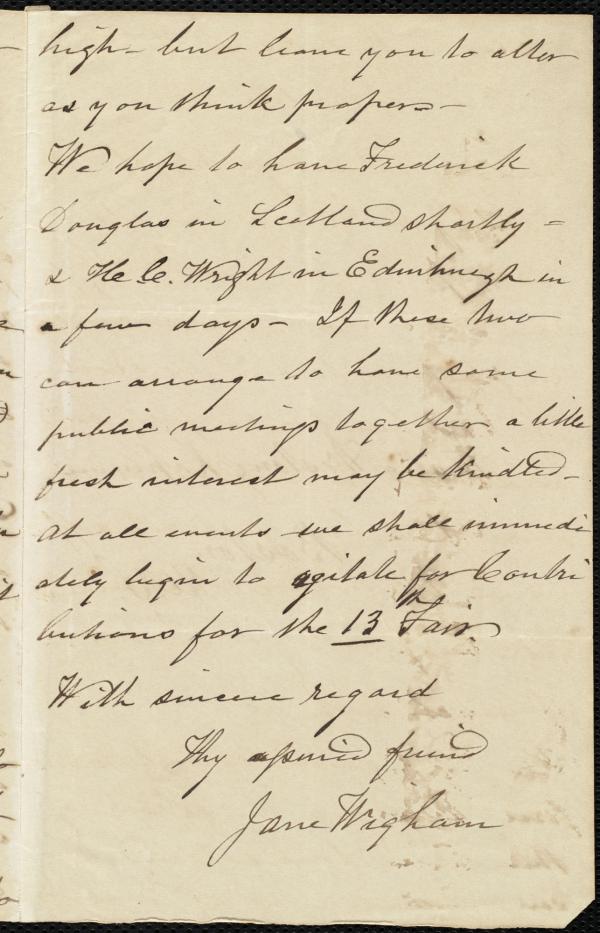 high - but leave you to alter
as you think proper -
We hope to have Frederick
Douglas in Scotland shortly -
& H. C. Wright in Edinburgh in
a few days - If these two
can arrange to have some
public meetings together a little
fresh interest may be kindled -
At all events we shall immedi
ately begin to agitate for Contri
butions for the 13th Fair.
With sincere regard
Thy friend
Jane Wigham